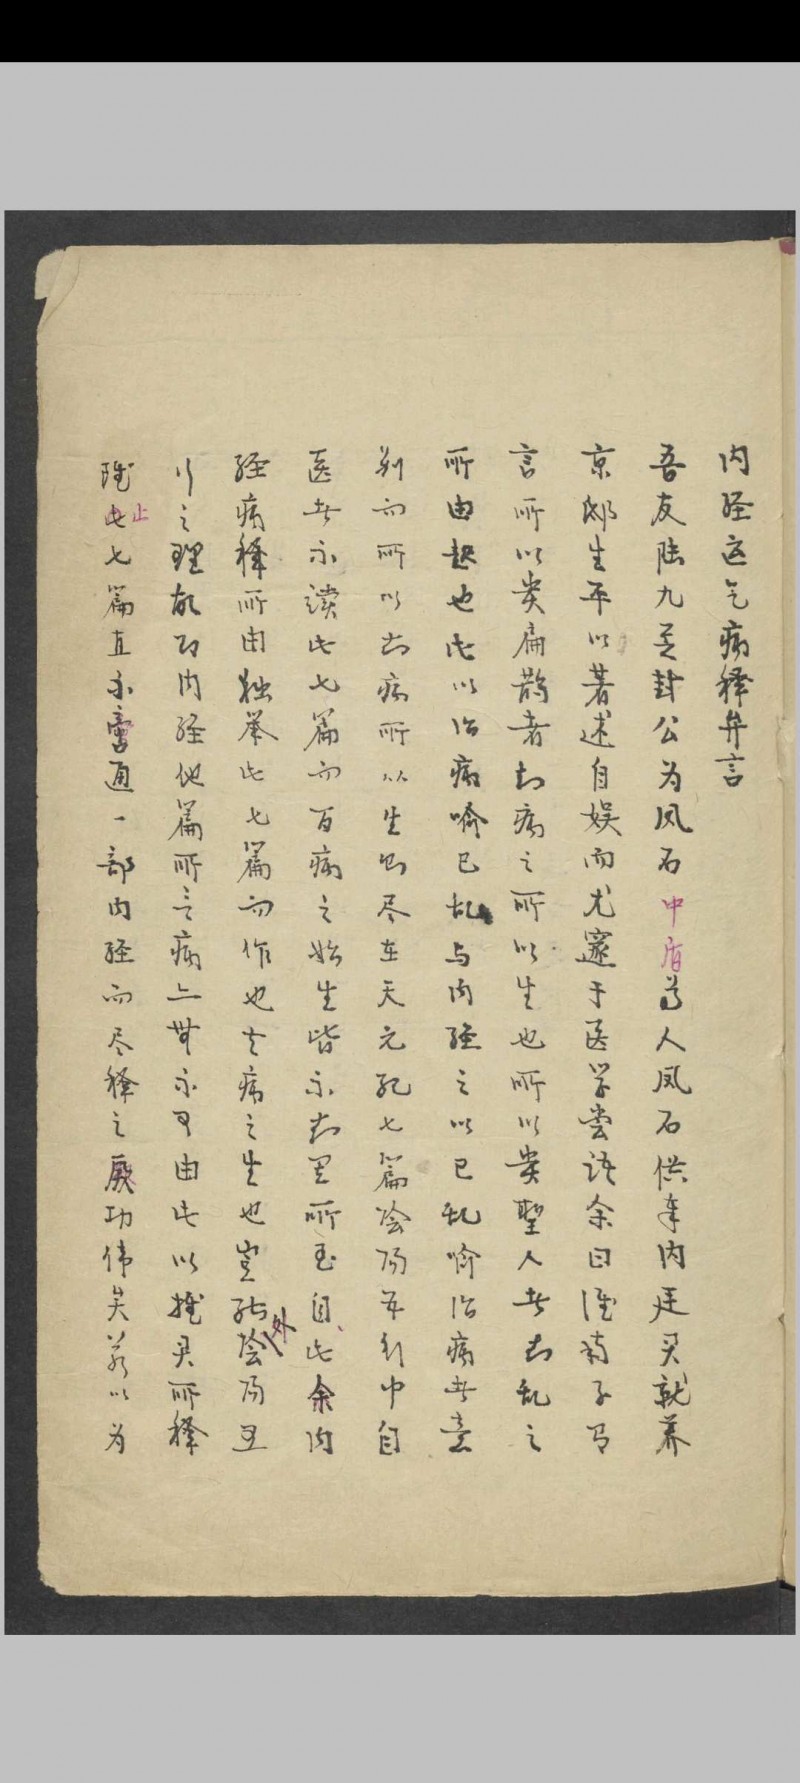 内经运气病释弁言
吾友陆九芝封公为凤石中盾尊人凤石供奉内廷君就养
京邸生平以著述自娱而尤邃于医学尝语余曰淮南子有
言所以贵扁鹊者知病之所以生也所以贵圣人者知乱之
所由起也此以治病喻已乱与内经之以已乱喻治病者意
别而所以知病所以生则尽在天元纪七篇阴阳五行中自
医者不读此七篇而百病之始生皆不知其所至自此余内
经病释所由独举此七篇而作也夫病之生也岂能外阴阳五
行之理故即内经他篇所言病亦无不可由此以推君所释
虽止七篇直不啻通一部内经而尽释之厥功伟矣若以为